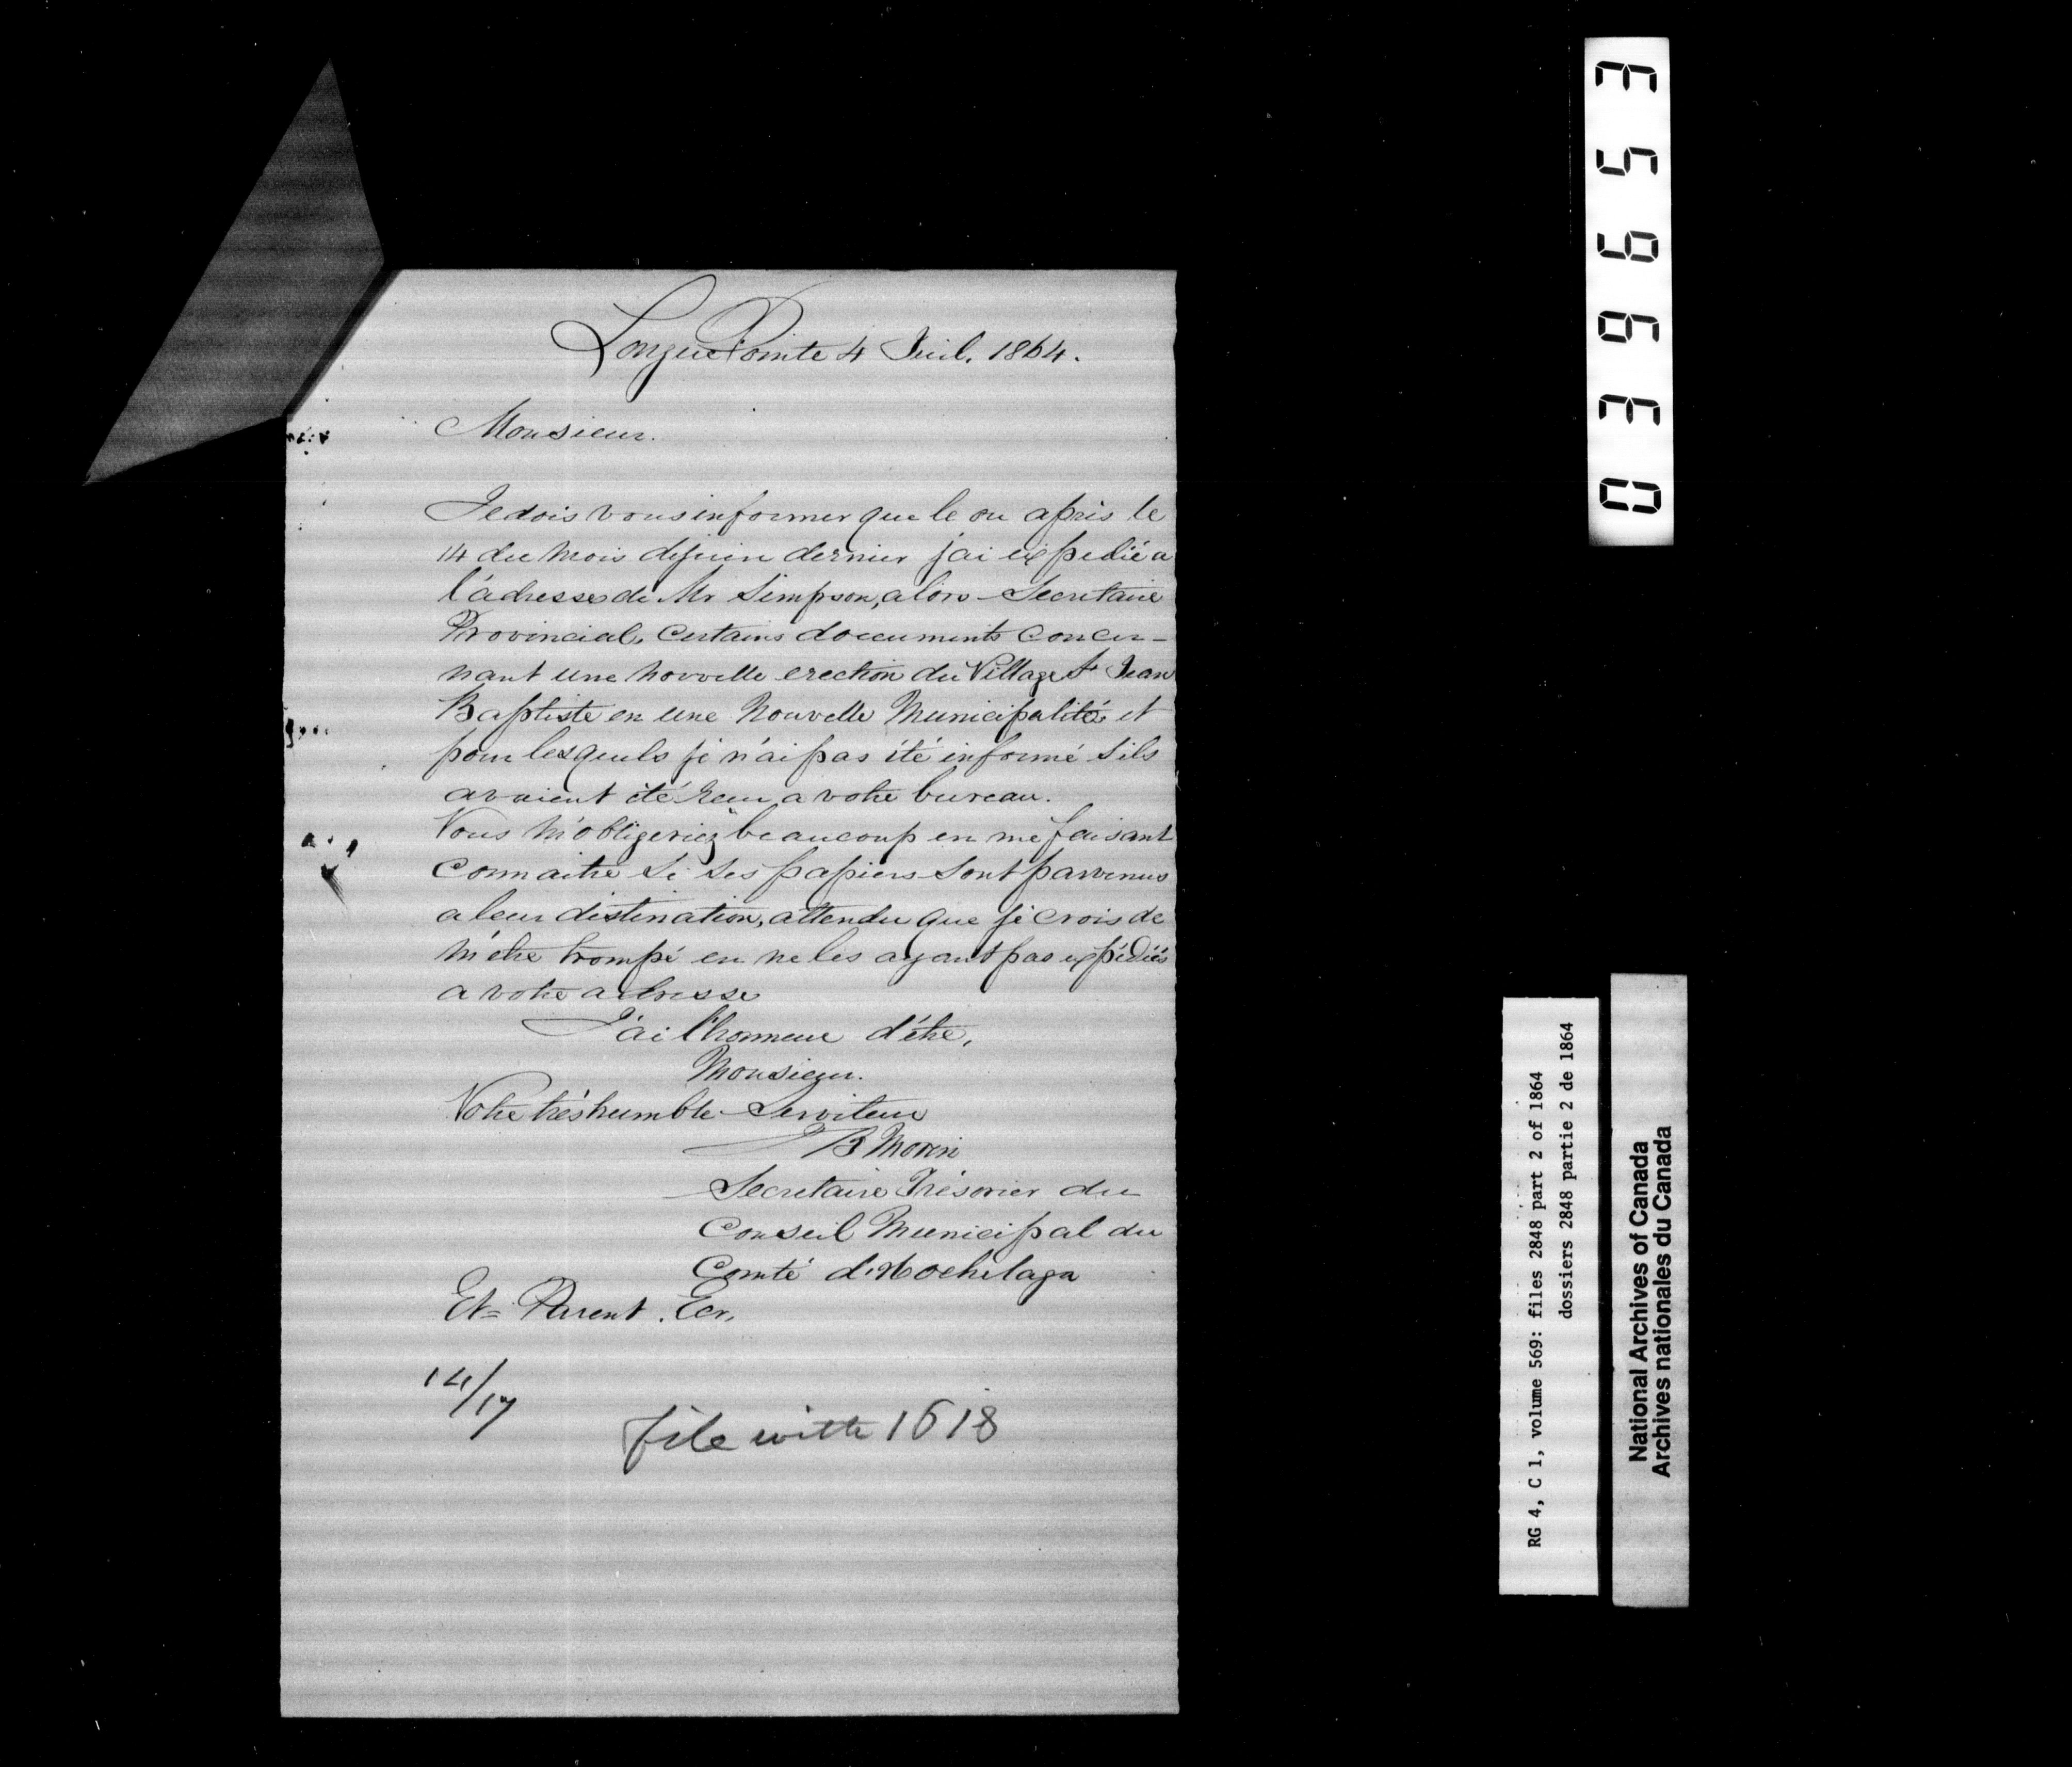 Longue Pointe 4 Juil. 1864.
Monsieur.
Je dois vous informer que le ou après le
14 du mois de juin dernier j'ai expedié a
l'adresse de Mr Simpson, alors Secretaire
Provincial, certains documents concer-
nant une nouvelle erection du Village St Jean
Baptiste en une Nouvelle Municipalité, et
pour lesquels je n'ai pas été informé s'ils
avaient été reçu a votre bureau.
Vous m'obligeriez beaucoup en me faisant
connaitre si ses papiers sont parvenus
a leur destination, attendu que je crois de
m'etre trompé en ne les ayant pas expédiés
a votre adresse
J'ai l'honneur d'être,
Monsieur.
Votre très humble Serviteur
J B Morin
Secretaire Trésorier du
Conseil Municipal du
Comté d'Hochelaga
Et= Parent. Ecr.
14/17
file with 1618
039653
RG 4, C 1, volume 569: files 2848 part 2 of 1864
dossiers 2848 partie 2 de 1864
National Archives of Canada
Archives nationales du Canada